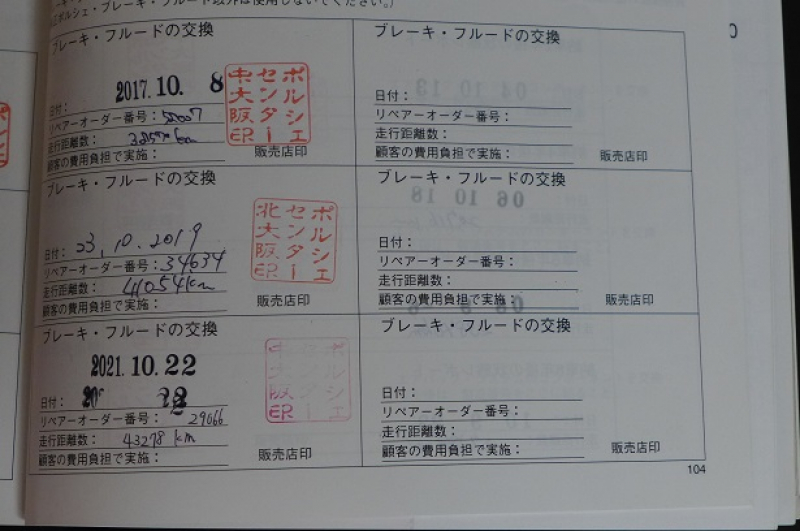 ポルシェ・ブレーキ・フルード以外は使用しないでください。)
ブレーキ・フルードの交換
2017.10. 8
日付：
リペアーオーダー番号：
走行距離数：
顧客の費用負担で実施：
ポルシェ
センター
大阪
印
販売店印
ブレーキ・フルードの交換
日付：23, 10. 2019
リペアーオーダー番号：34634
走行距離数：41054km
顧客の費用負担で実施：
ポルシェ
センター
北大阪
印
販売店印
ブレーキ・フルードの交換
2021.10.22
日付：
リペアーオーダー番号：29066
走行距離数：43278 km
顧客の費用負担で実施：
販売店印
ブレーキ・フルードの交換
日付：
リペアーオーダー番号：
走行距離数：
顧客の費用負担で実施：
販売店印
ブレーキ・フルードの交換
日付：
リペアーオーダー番号：
走行距離数：
顧客の費用負担で実施：
販売店印
ブレーキ・フルードの交換
日付：
リペアーオーダー番号：
走行距離数：
顧客の費用負担で実施：
販売店印
104